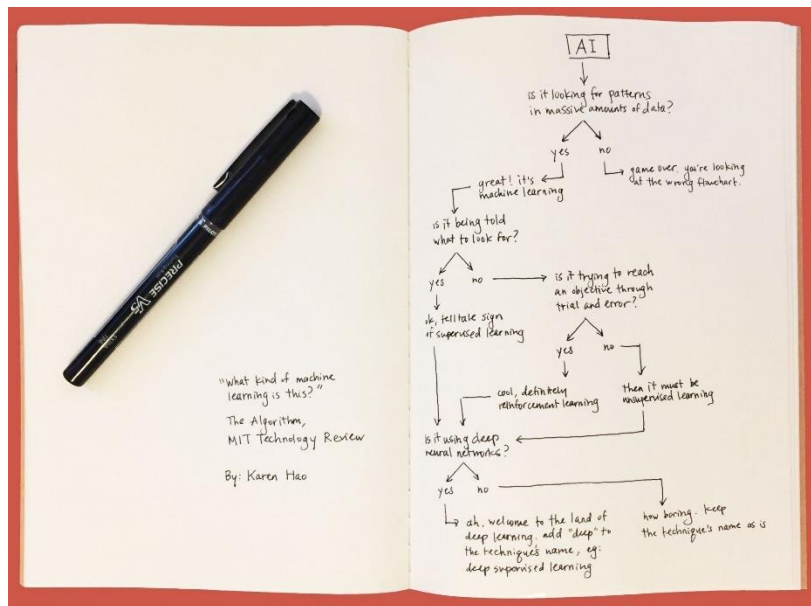 PRECISE V5
"What kind of machine
learning is this?"
The Algorithm,
MIT Technology Review
By: Karen Hao
AI
is it looking for patterns
in massive amounts of data?
yes
no
great! it's
machine learning
game over. you're looking
at the wrong flowchart.
is it being told
what to look for?
yes
no
is it trying to reach
an objective through
trial and error?
ok, telltale sign
of supervised learning
yes
no
cool, definitely
reinforcement learning
then it must be
unsupervised learning
Is it using deep
neural networks?
yes
no
ah. welcome to the land of
deep learning. add "deep" to
the technique's name, eg:
deep supervised learning
how boring. keep
the technique's name as is